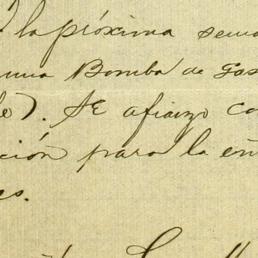 la próxima sema
una Bomba de Gas
le). Se afianzo co
ción para la en
es.